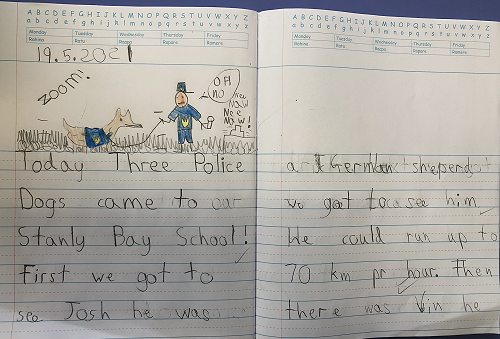 A B C D E F G H I J K L M N O P Q R S T U V W X Y Z
a b c d e f g h i j k l m n o p q r s t u v w x y z
Monday Tuesday Wednesday Thursday Friday
Rāhina Rātū Rāapa Rāpare Rāmere
19.5.2021
ZOOM!
OH
NO
nee
NAW
NEE
NAW!
Today Three Police
Dogs came to our
Stanly Bay School!
First we got to
see Josh he was
A B C D E F G H I J K L M N O P Q R S T U V W X Y Z
a b c d e f g h i j k l m n o p q r s t u v w x y z
Monday Tuesday Wednesday Thursday Friday
Rāhina Rātū Rāapa Rāpare Rāmere
a German sheperd
we got to see him.
He could run up to
70 km pr hour. Then
there was Vin he